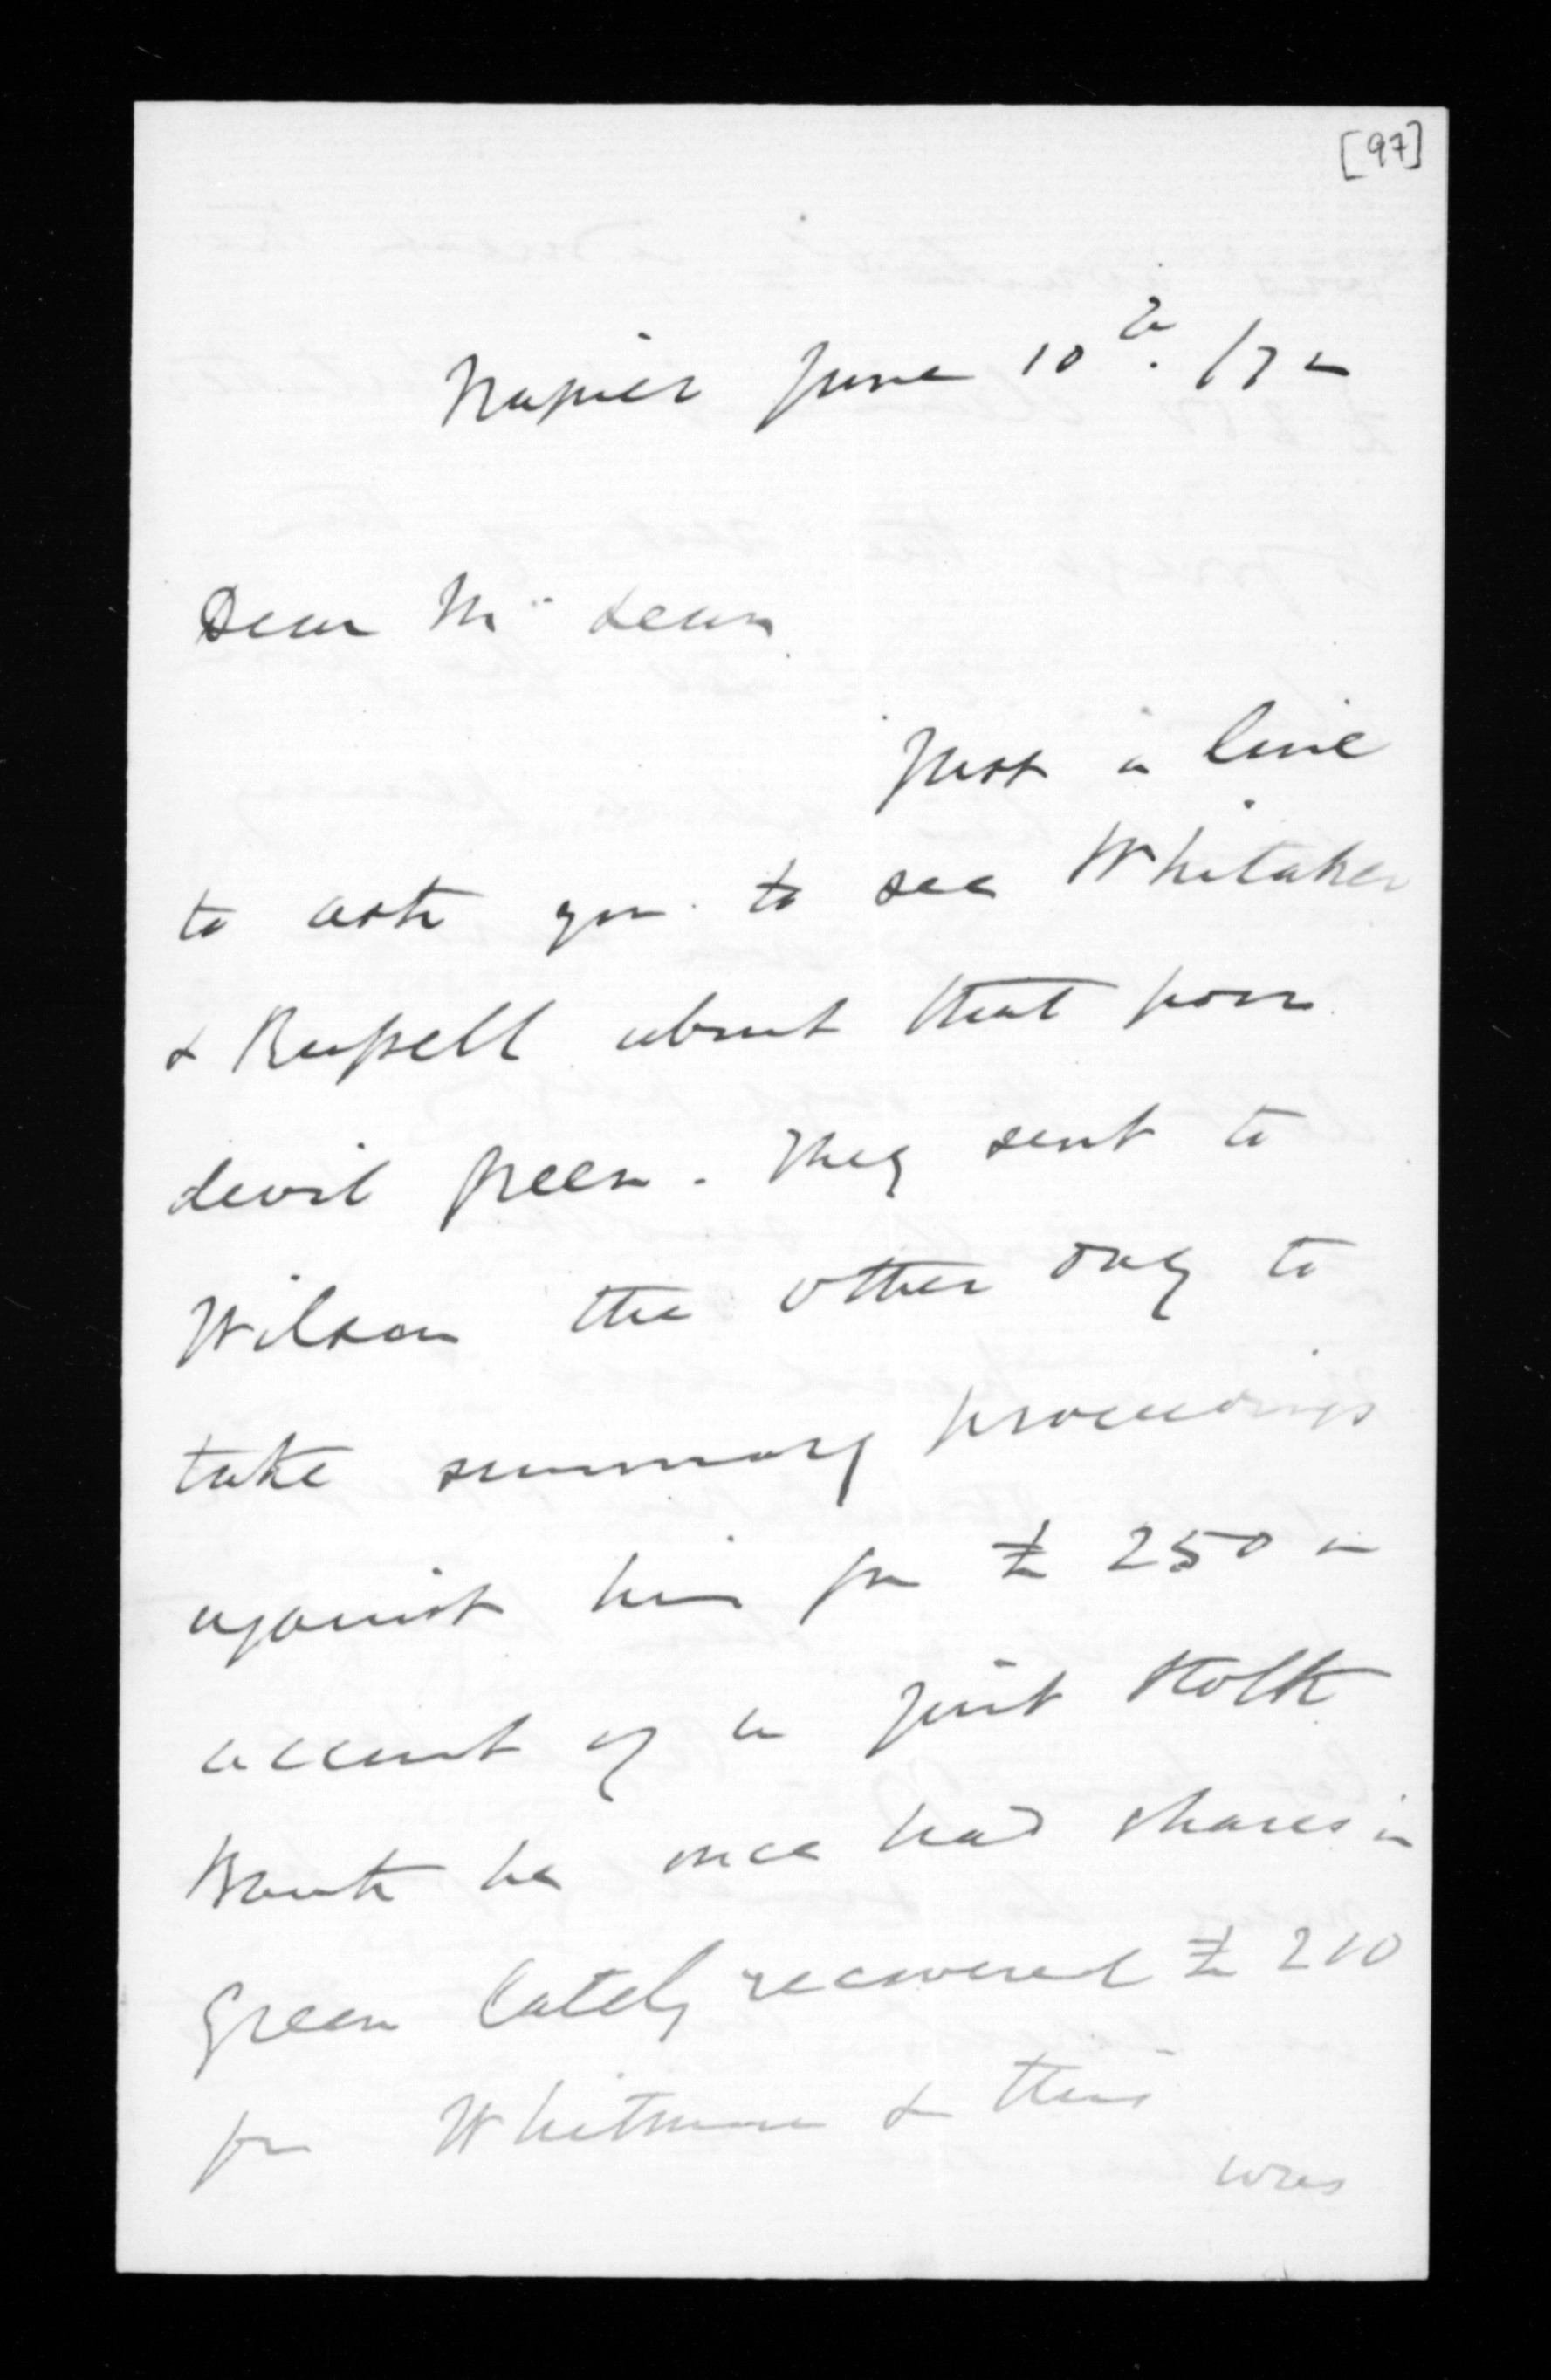 [97]
Napier June 10th. /72
Dear McLean
Just a line
to ask you to see Whitaker
& Russell about that poor
devil Green. They sent to
Wilson the other day to
take summary proceedings
against him for £250 on
account of a joint stock
Bank he once had shares in
Green lately recovered £210
for Whitmore & this
was